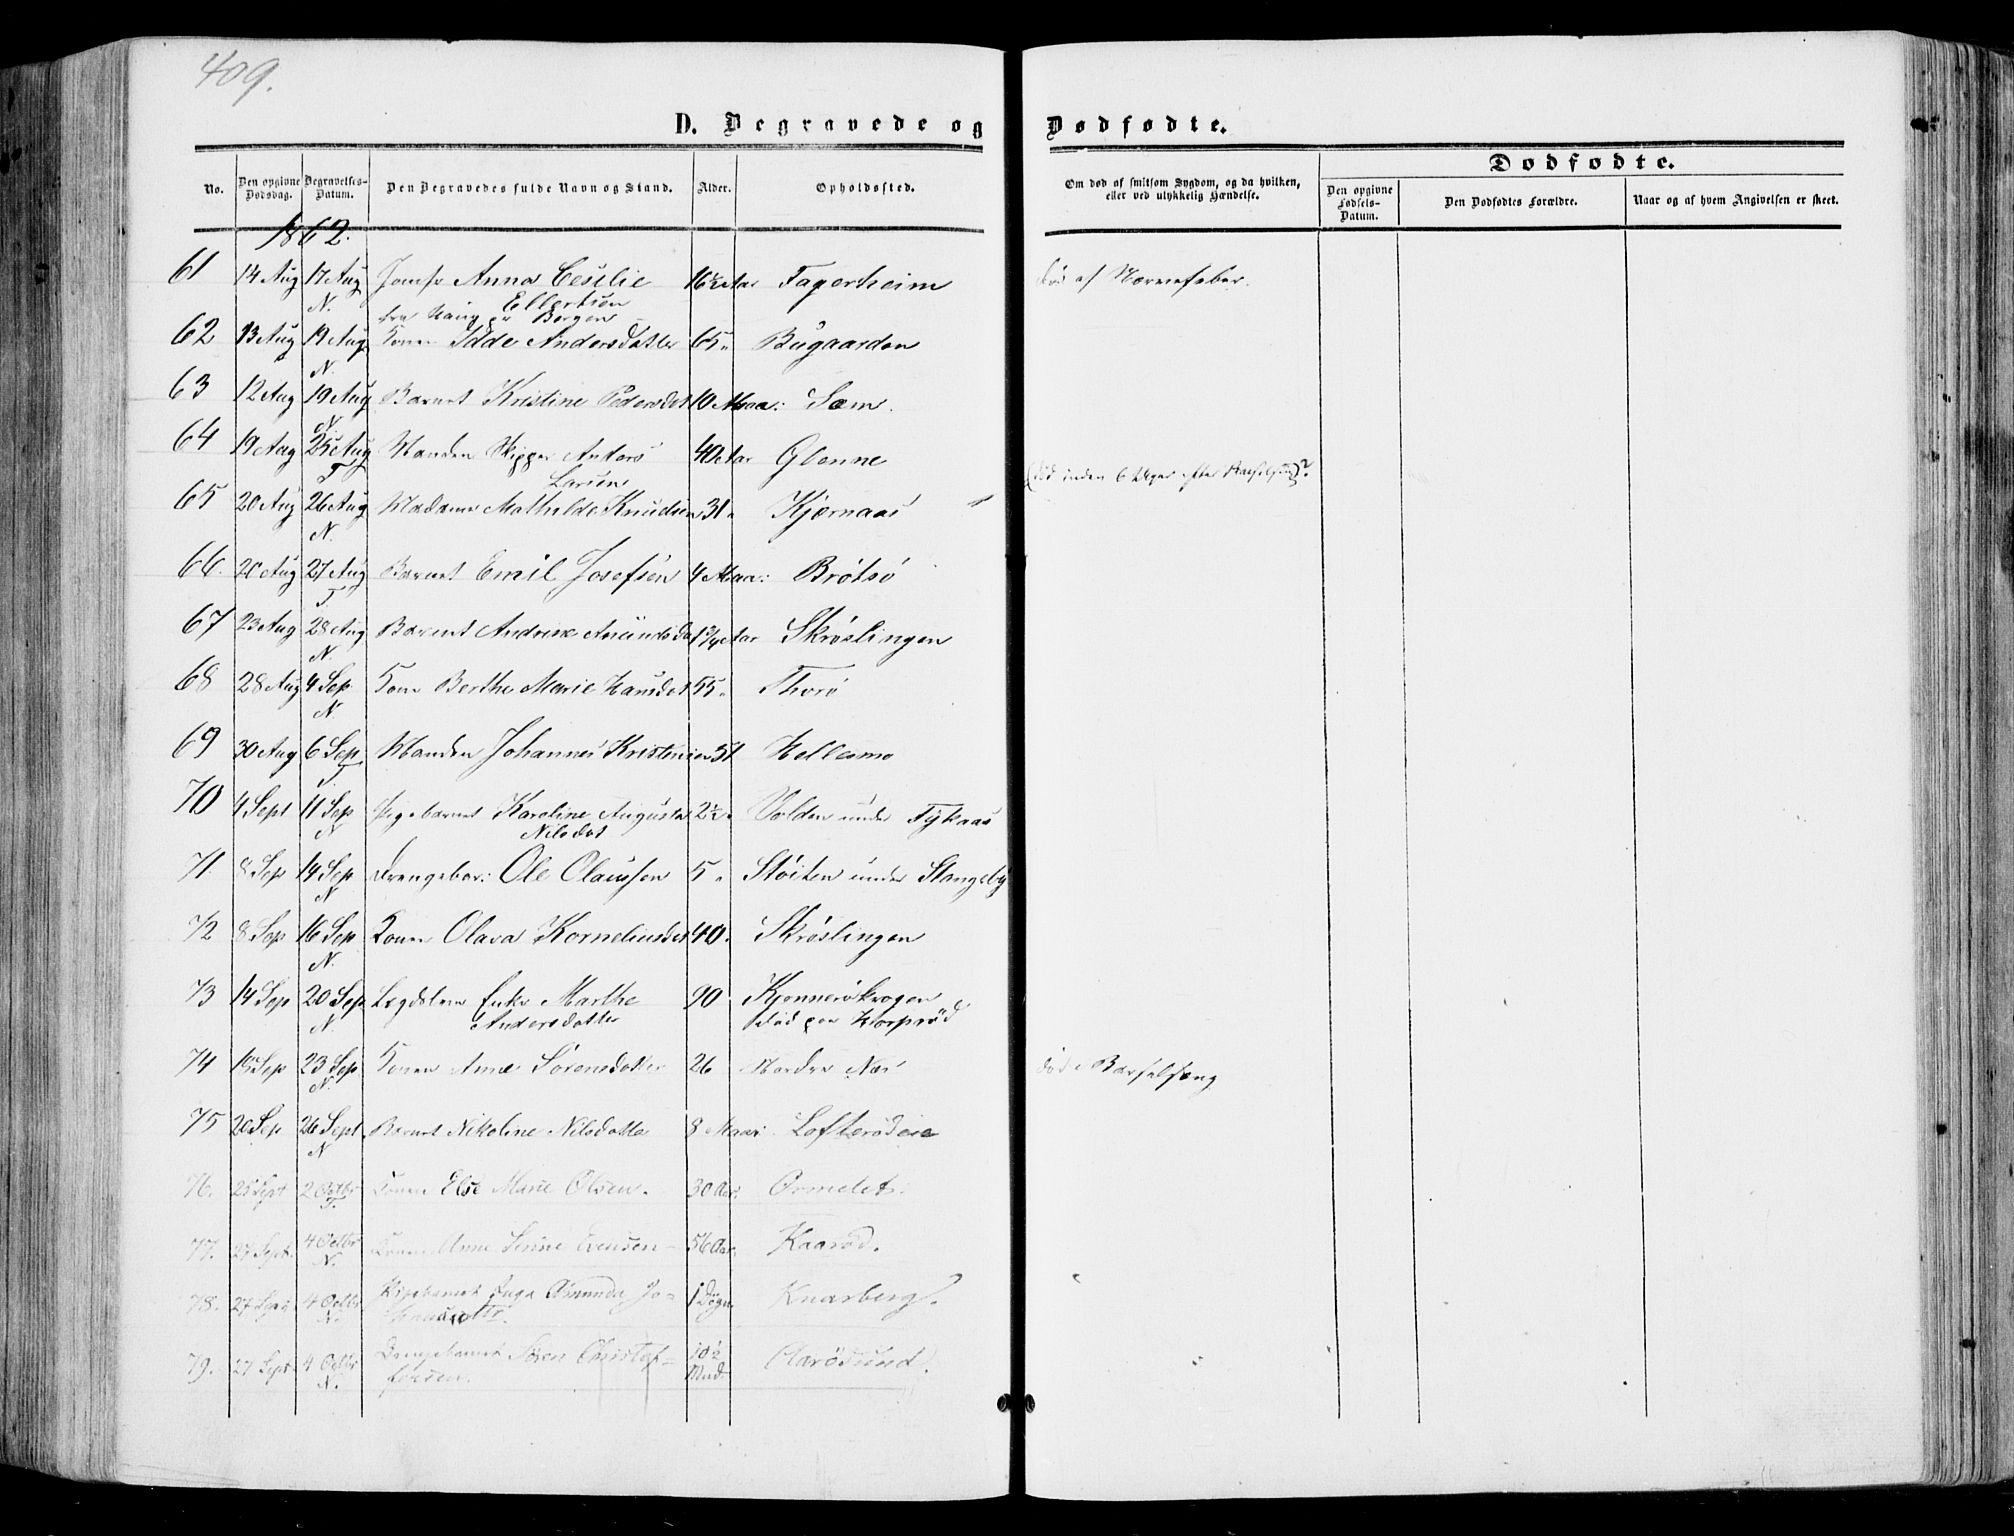 409.
D. Begravede og Dødfødte.
Dødfødte.
No. Den opgivne Dødsdag. Begravelses-Datum. Den Begravedes fulde Navn og Stand. Alder. Opholdssted. Om død af smitsom Sygdom, og da hvilken, eller ved ulykkelig Hændelse. Den opgivne Fødsels-Datum. Den Dødfødtes Forældre. Naar og af hvem Angivelsen er skeet.
1862.
61 14 Aug 17 Aug Jomfr Anna Cesilie 16½ Aar Fagerheim død af Nervefeber.
N. Ellertsen
fra Bergen
62 13 Aug 19 Aug Konen Idde Andersdatter 65 " Bugaarden
N.
63 12 Aug 19 Aug Barnet Kristine Pedersdat 10 Maa: Sem.
N
64 19 Aug 25 Aug Manden Skipper Anders 40 Aar Glenne
T Larsen
(død inden 6 Uger efter Barselseng)?
65 20 Aug 26 Aug Madame Mathilde Knudsen 31 " Kjærnaas "
N.
66. 20 Aug 27 Aug Barnet Emil Josefsen 4 Maa: Brøtsø
T
67 23 Aug 28 Aug Barnet Andrine Amundsda 1¾ Aar Skrøslingen
N.
68 28 Aug 4 Sep Kone Berthe Marie Hansdat 55 " Thorø
N.
69 30 Aug 6 Sep Manden Johannes Kristensen 51 Hellesmo
T
70 4 Sept 11 Sep Pigebarnet Karoline Augusta 2½ " Volden under Fykaas
N Nilsdat
71. 8 Sep 14 Sep Drengebar: Ole Olaussen 5 " Støiten under Stangeby
N
72 8 Sep 16 Sep Konen Olava Korneliusdat 40. Skrøslingen
N.
73 14 Sep 20 Sep Lægdslem Enke Marthe 90 Kjønnerøkrogen
N. Andersdatter død paa Torprød
74 18 Sep 23 Sep Konen Anne Sørensdatter 26 Nordre Næs død i Barselseng
N.
75 20 Sep 26 Sept Barnet Nikoline Nilsdatte 8 Maa: Lofterødeie
N
76. 25 Sept 2 Octbr Konen Else Marie Olsen. 30 Aar. Ormelet.
T.
77. 27 Sept. 4 Octbr Konen Anne Serine Evensen 56 Aar. Kaarød.
N.
78. 27 Sept 4 Octbr Pigebarnet Inga Amunda Jo= 1 Døgn Knarberg.
N. hansdttr.
79. 27 Sept 4 Octbr Drengebarnet Søren Christof= 10½ Aarøsund.
N. fersen. Mnd.